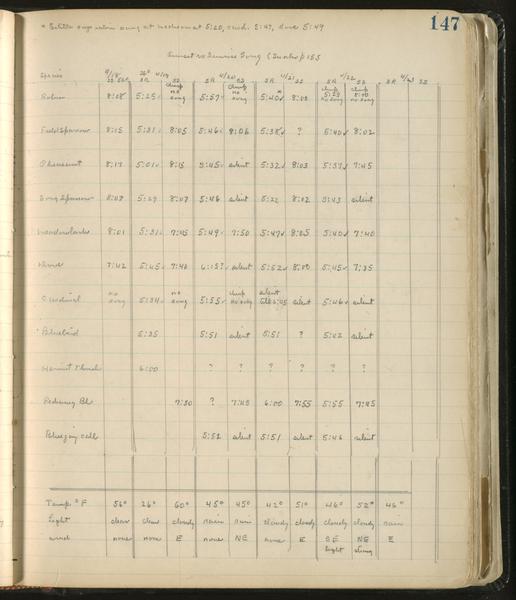 147
Sunset vs Sunrise Song
Species 4/18 4/19 4/20 4/21 4/22 4/23
SS SR SS SR SS SR SS SR SS SR SS
Robin 8:08 5:25 chirp no song 5:57 chirp no song 5:40 8:03 chirp 5:29 no song chirp 8:00 no song
Field Sparrow 8:15 5:31 8:05 5:46 8:06 5:38 ? 5:40 8:02
Pheasant 8:17 5:01 8:15 5:45 silent 5:32 8:03 5:37 7:45
Song Sparrow 5:29 8:07 5:46 silent 5:22 8:02 silent
Meadowlark 8:01 5:31 7:45 5:49 7:50 5:47 8:05 5:40 7:40
7:42 5:45 7:40 6:15? silent 5:52 8:00 5:45 7:35
Cardinal no song 5:34 no song 5:55 chirp no song silent till silent 5:46 silent
Bluebird 5:35 5:51 silent 5:51 ? 5:42 silent
Hermit Thrush 6:00 ? ? ? ? ? ?
Redwing Bl 7:30 ? 7:45 6:00 7:55 5:55 7:45
Bluejay call 5:52 silent 5:51 silent 5:46 silent
Temp °F 56° 26° 60° 45° 45° 42° 51° 46° 52° 46°
Light clear clear cloudy rain rain cloudy cloudy cloudy cloudy rain
wind none none E none NE none E SE light NE strong E